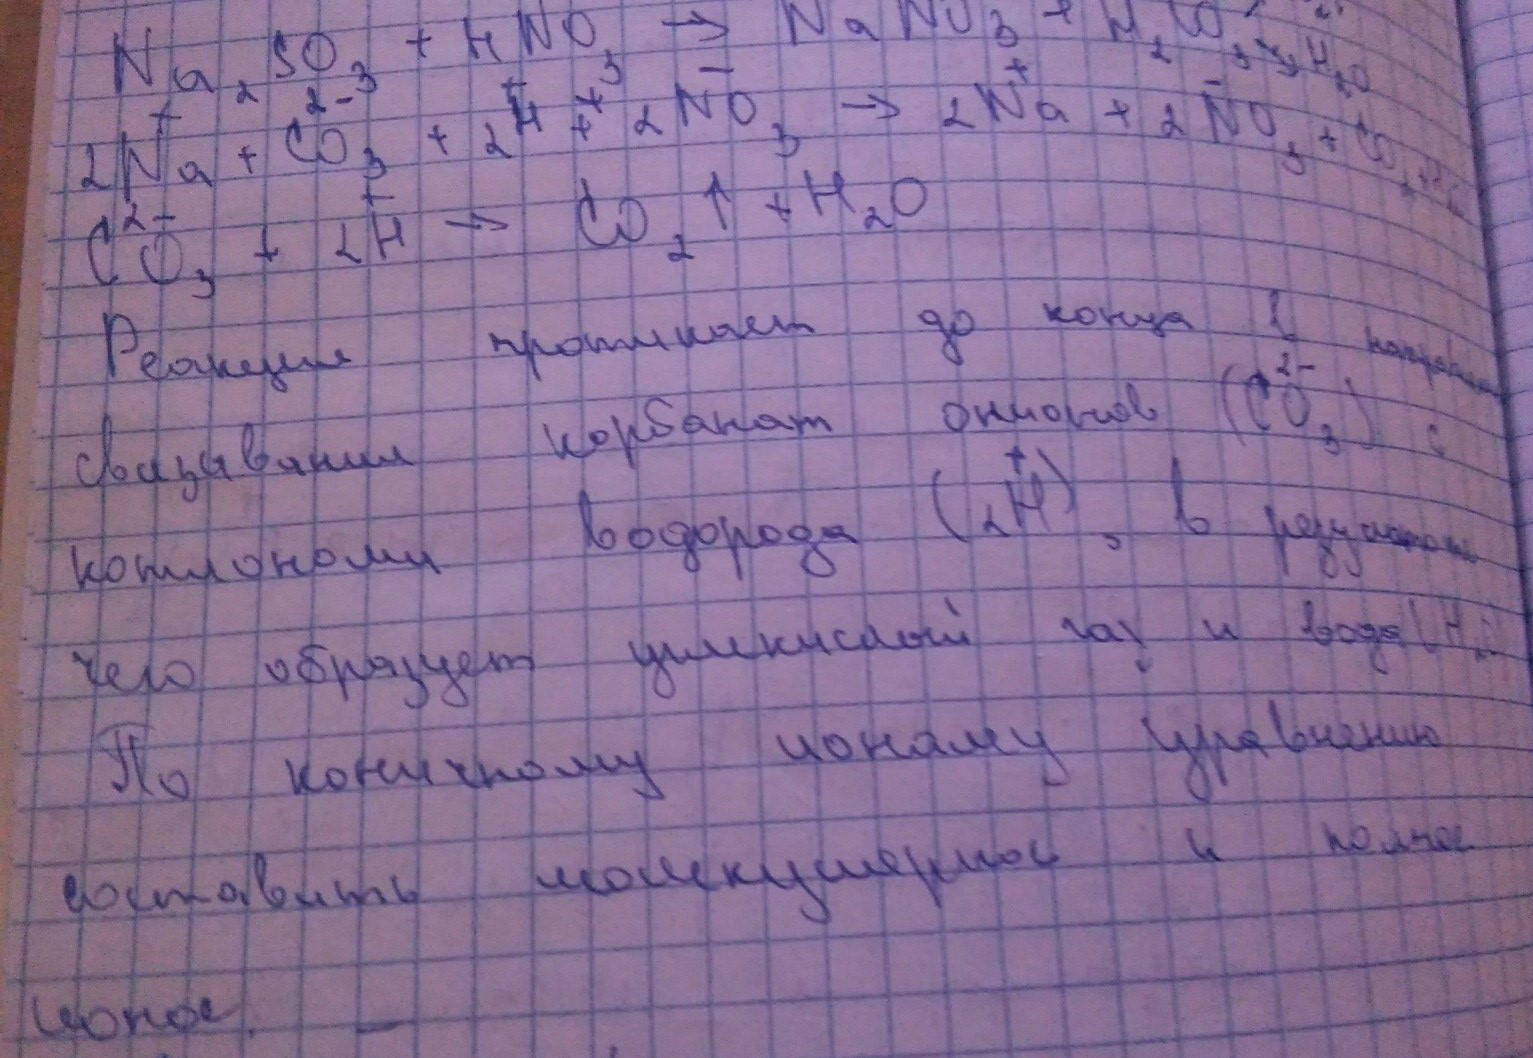 Na₂SO₃ + HNO₃ → NaNO₃ + H₂CO₃ H₂O
2Na⁺ + CO₃²⁻ + 2H⁺ + 2NO₃⁻ → 2Na⁺ + 2NO₃⁻ + CO₂
CO₃²⁻ + 2H⁺ → CO₂↑ + H₂O
Реакция протикает до конца в
связывания корбанат онионов (CO₃²⁻) с
котиономи водорода (2H⁺), в
чего образует углекислый газ и вода
По конечному ионаму уравнению
составить молекулярное и полное
ионое.